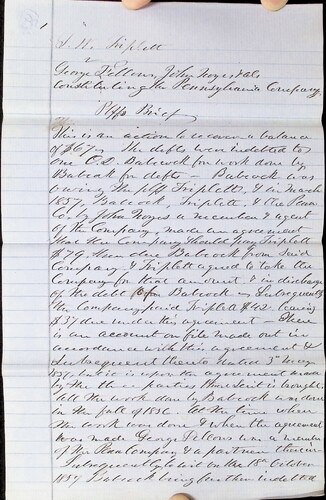 F. W. Triplett
v
George Fellows, John Noyes & als
Constituting the Pennsylvania Company.
Plffs Brief
This is an action to recover a balance
of $67. The defts were indebted to
one O.L. Babcock for work done by
Babcock for defts — Babcock was
owing the plff Triplett, & in March
1857, Babcock, Triplett, & the Penn
Co. by John Noyes a member & agent
of the Company, made an agreement
that the Company should pay Triplett
$79, then due Babcock from said
Company & Triplett agreed to take the
Company for that amount & in discharge
of the debt from Babcock — Subsequently
the Company paid Triplett $42. leaving
$37 due under this agreement — There
is an account on file made out in
accordance with this agreement &
subsequent thereto dated 3d May
1857, but it is upon the agreement made
by the three parties that suit is brought.
All the work done by Babcock was done
in the fall of 1856. At the time when
the work was done & when the agreement
was made George Fellows was a member
of the Penn Company & a partner therein
Subsequently to wit on the 18th October
1857 Babcock being further indebted